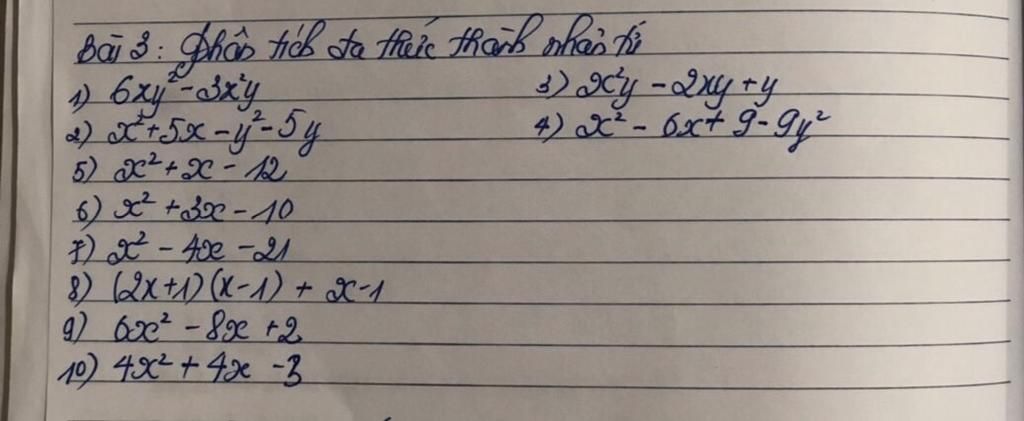 Bài 3: Phân tích đa thức thành nhân tử
1) 6xy² - 3x²y 3) x²y - 2xy + y
2) x² + 5x - y² - 5y 4) x² - 6x + 9 - 9y²
5) x² + x - 12
6) x² + 3x - 10
7) x² - 4x - 21
8) (2x+1)(x-1) + x-1
9) 6x² - 8x + 2
10) 4x² + 4x - 3